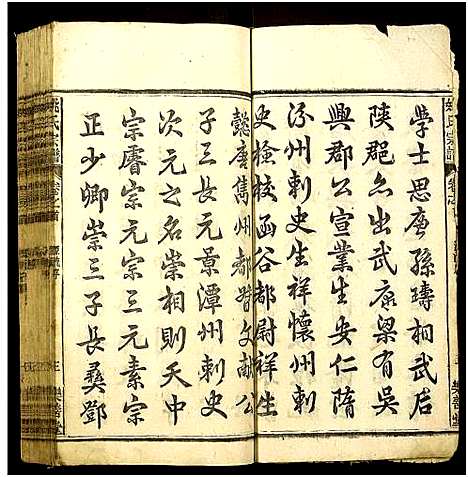 學士思廉孫璹相武后
陝郡亦出武康梁有吳
興郡公宣業生安仁隋
汾州刺史生祥懷州刺
史檢校函谷都尉祥生
懿唐嶲州都督文獻公
子三長元景潭州刺史
次元之名崇相則天中
宗睿宗元宗三元素宗
正少卿崇三子長彝鄧
姚氏宗譜
卷之首
樂善堂